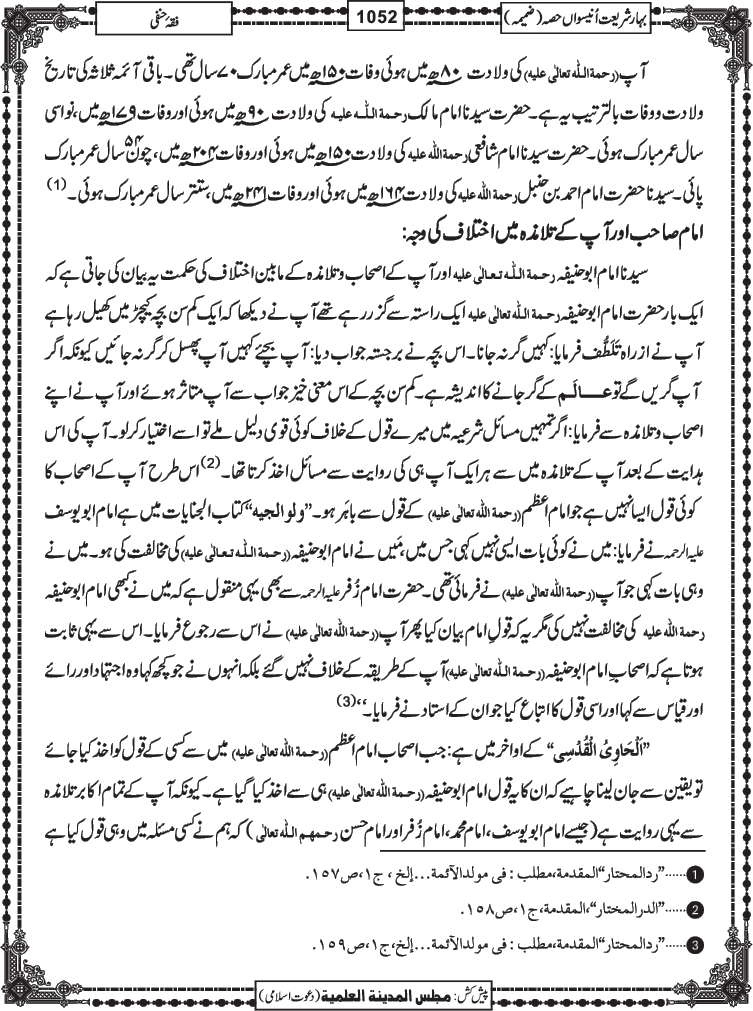 بہار شریعت اُنیسواں حصہ (ضمیمہ)
1052
فقۂ حنفی
آپ (رحمۃ اللہ تعالٰی علیہ) کی ولادت ۸۰ھ میں ہوئی وفات ۱۵۰ھ میں عمر مبارک ۷۰ سال تھی۔ باقی آئمہ ثلاثہ کی تاریخ
ولادت و وفات بالترتیب یہ ہے۔ حضرت سیدنا امام مالک رحمۃ اللہ علیہ کی ولادت ۹۰ھ میں ہوئی اور وفات ۱۷۹ھ میں، نواسی
سال عمر مبارک ہوئی۔ حضرت سیدنا امام شافعی رحمۃ اللہ علیہ کی ولادت ۱۵۰ھ میں ہوئی اور وفات ۲۰۴ھ میں، چون ۵۴ سال عمر مبارک
پائی۔ سیدنا حضرت امام احمد بن حنبل رحمۃ اللہ علیہ کی ولادت ۱۶۴ھ میں ہوئی اور وفات ۲۴۱ھ میں، ستتر سال عمر مبارک ہوئی۔ (1)
امام صاحب اور آپ کے تلامذہ میں اختلاف کی وجہ:
سیدنا امام ابوحنیفہ رحمۃ اللہ تعالٰی علیہ اور آپ کے اصحاب و تلامذہ کے مابین اختلاف کی حکمت یہ بیان کی جاتی ہے کہ
ایک بار حضرت امام ابوحنیفہ رحمۃ اللہ تعالٰی علیہ ایک راستہ سے گزر رہے تھے آپ نے دیکھا کہ ایک کم سن بچہ کیچڑ میں کھیل رہا ہے
آپ نے از راہ تَلَطُّف فرمایا: کہیں گر نہ جانا۔ اس بچہ نے برجستہ جواب دیا: آپ بچئے کہیں آپ پھسل کر گر نہ جائیں کیونکہ اگر
آپ گریں گے تو عالَم کے گر جانے کا اندیشہ ہے۔ کم سن بچہ کے اس معنی خیز جواب سے آپ متاثر ہوئے اور آپ نے اپنے
اصحاب و تلامذہ سے فرمایا: اگر تمہیں مسائل شرعیہ میں میرے قول کے خلاف کوئی قوی دلیل ملے تو اسے اختیار کر لو۔ آپ کی اس
ہدایت کے بعد آپ کے تلامذہ میں سے ہر ایک آپ ہی کی روایت سے مسائل اخذ کرتا تھا۔ (2) اس طرح آپ کے اصحاب کا
کوئی قول ایسا نہیں ہے جو امام اعظم (رحمۃ اللہ تعالٰی علیہ) کے قول سے باہَر ہو۔ ”ولوالجیہ“ کتاب الجنایات میں ہے امام ابو یوسف
علیہ الرحمہ نے فرمایا: میں نے کوئی بات ایسی نہیں کہی جس میں، مَیں نے امام ابوحنیفہ (رحمۃ اللہ تعالٰی علیہ) کی مخالفت کی ہو۔ میں نے
وہی بات کہی جو آپ (رحمۃ اللہ تعالٰی علیہ) نے فرمائی تھی۔ حضرت امام زُفَر علیہ الرحمہ سے بھی یہی منقول ہے کہ میں نے کبھی امام ابوحنیفہ
رحمۃ اللہ علیہ کی مخالفت نہیں کی مگر یہ کہ قولِ امام بیان کیا پھر آپ (رحمۃ اللہ تعالٰی علیہ) نے اس سے رجوع فرمایا۔ اس سے یہی ثابت
ہوتا ہے کہ اصحابِ امام ابوحنیفہ (رحمۃ اللہ تعالٰی علیہ) آپ کے طریقہ کے خلاف نہیں گئے بلکہ انہوں نے جو کچھ کہا وہ اجتہاد اور رائے
اور قیاس سے کہا اور اسی قول کا اتباع کیا جو ان کے استاد نے فرمایا۔“ (3)
”اَلْحَاوِیُ الْقُدْسِی“ کے اواخر میں ہے: جب اصحابِ امام اعظم (رحمۃ اللہ تعالٰی علیہ) میں سے کسی کے قول کو اخذ کیا جائے
تو یقین سے جان لینا چاہیے کہ ان کا یہ قول امام ابوحنیفہ (رحمۃ اللہ تعالٰی علیہ) ہی سے اخذ کیا گیا ہے۔ کیونکہ آپ کے تمام اکابر تلامذہ
سے یہی روایت ہے (جیسے امام ابو یوسف، امام محمد، امام زُفر اور امام حسن رحمہم اللہ تعالٰی) کہ ہم نے کسی مسئلہ میں وہی قول کیا ہے
1 ......”ردالمحتار“ المقدمۃ، مطلب: فی مولد الآئمۃ...إلخ، ج۱، ص۱۵۷.
2 ......”الدرالمختار“، المقدمۃ، ج۱، ص۱۵۸.
3 ......”ردالمحتار“ المقدمۃ، مطلب: فی مولد الآئمۃ...إلخ، ج۱، ص۱۵۹.
پیش کش: مجلس المدینۃ العلمیۃ (دعوت اسلامی)